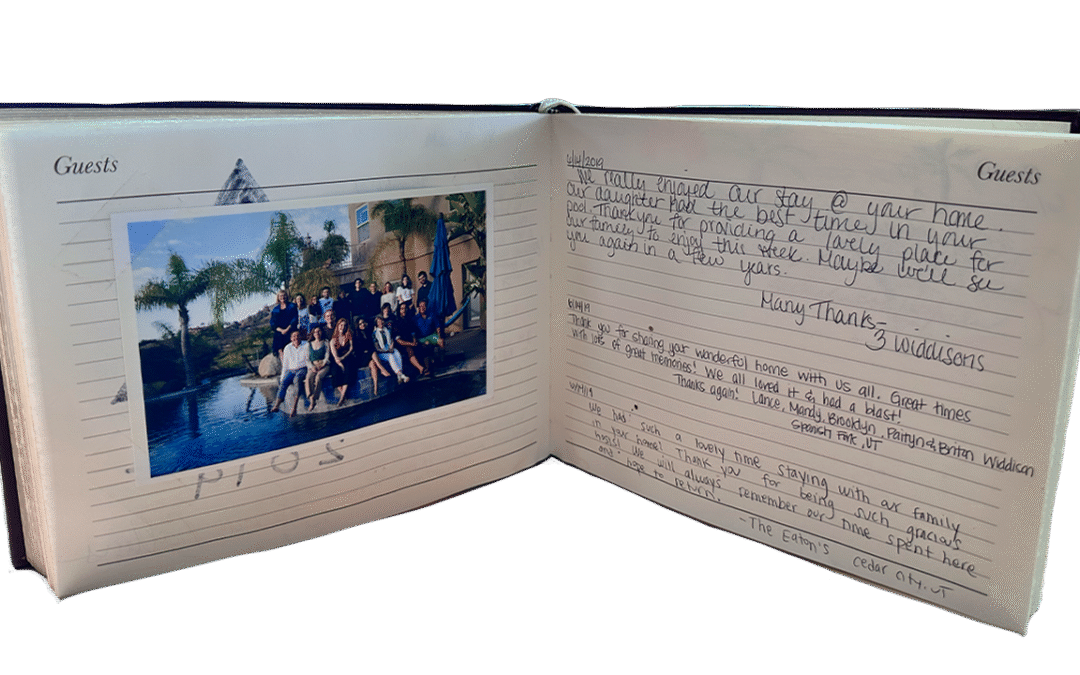 Guests
2019
Guests
6/14/2019
We really enjoyed our stay @ your home.
Our daughter had the best time in your
pool. Thank you for providing a lovely place for
our family to enjoy this week. Maybe we'll see
you again in a few years.
Many Thanks-
3 Widdisons
6/14/19
Thank you for sharing your wonderful home with us all. Great times
with lots of great memories! We all loved it & had a blast!
Thanks again! Lance, Mandy, Brooklyn, & Britan Widdison
Spanish Fork, UT
6/14/19
We had such a lovely time staying with our family
in your home! Thank you for being such gracious
hosts! We will always remember our time spent here
and hope to return.
-The Eaton's Cedar City, UT